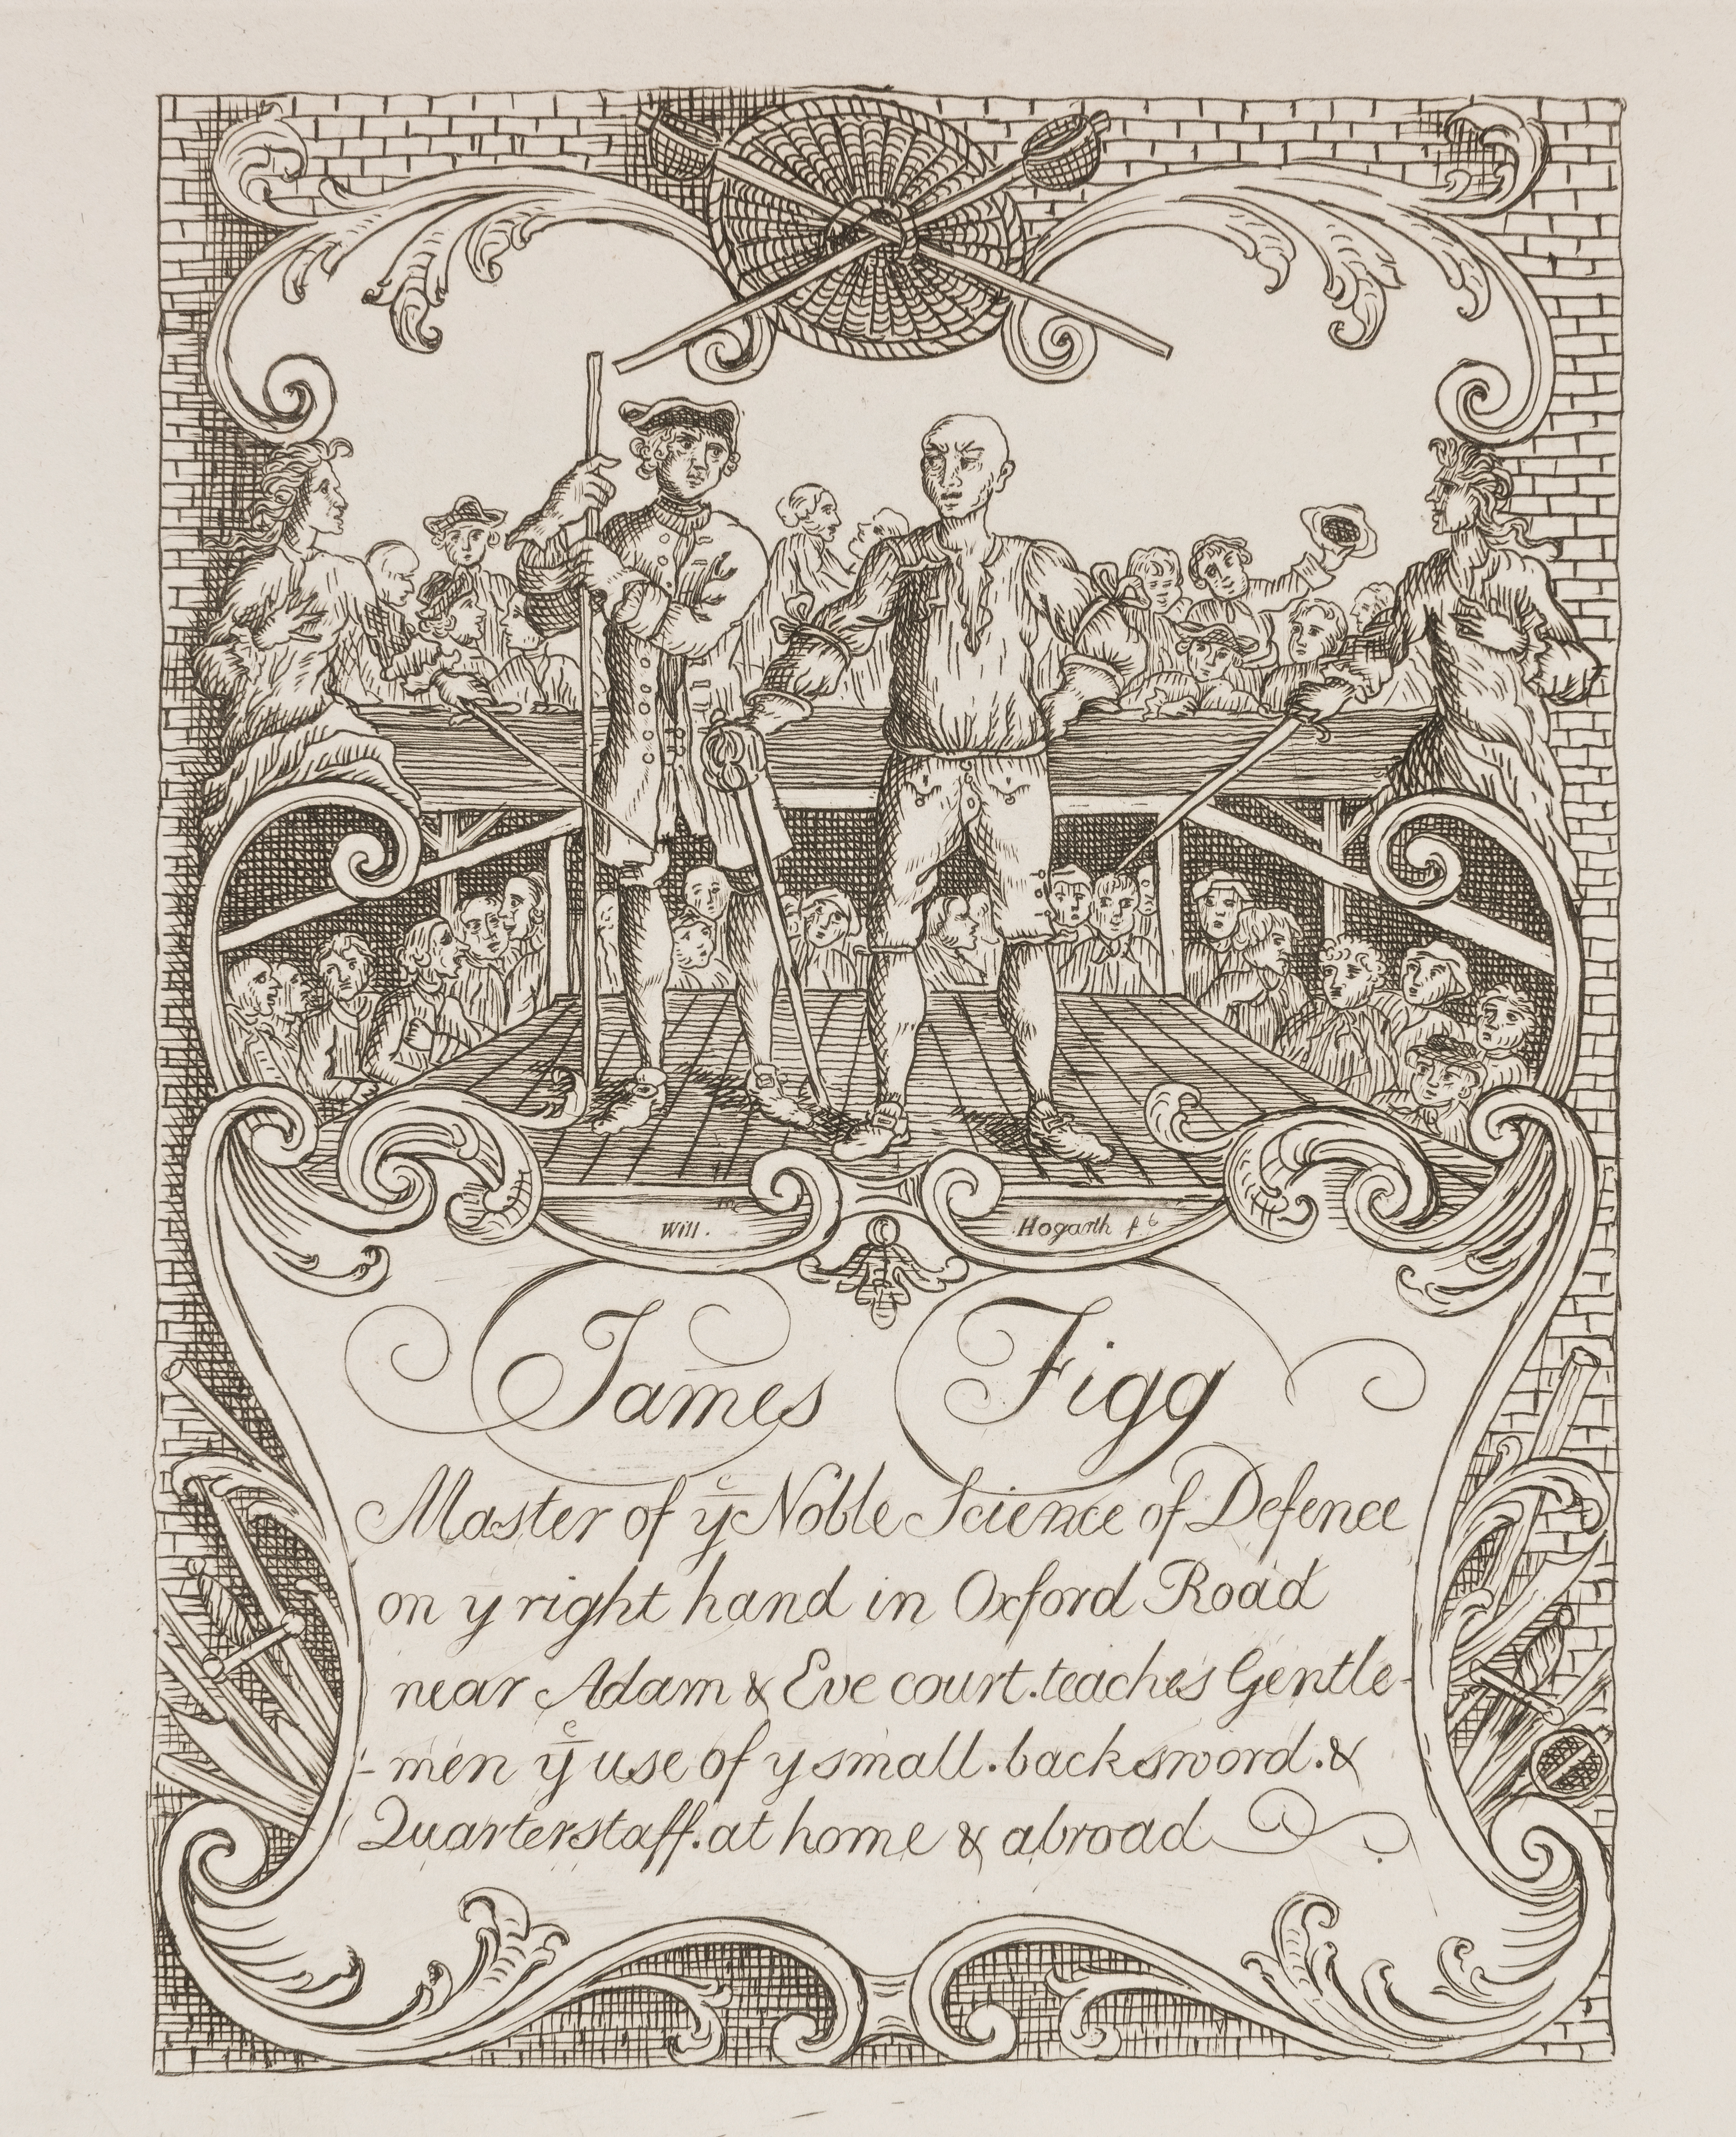 Will. Hogarth f
James Figg
Master of yͤ Noble Science of Defence
on y right hand in Oxford Road
near Adam & Eve court. teaches Gentle-
-men yͤ use of y small. backsword. &
Quarterstaff. at home & abroad